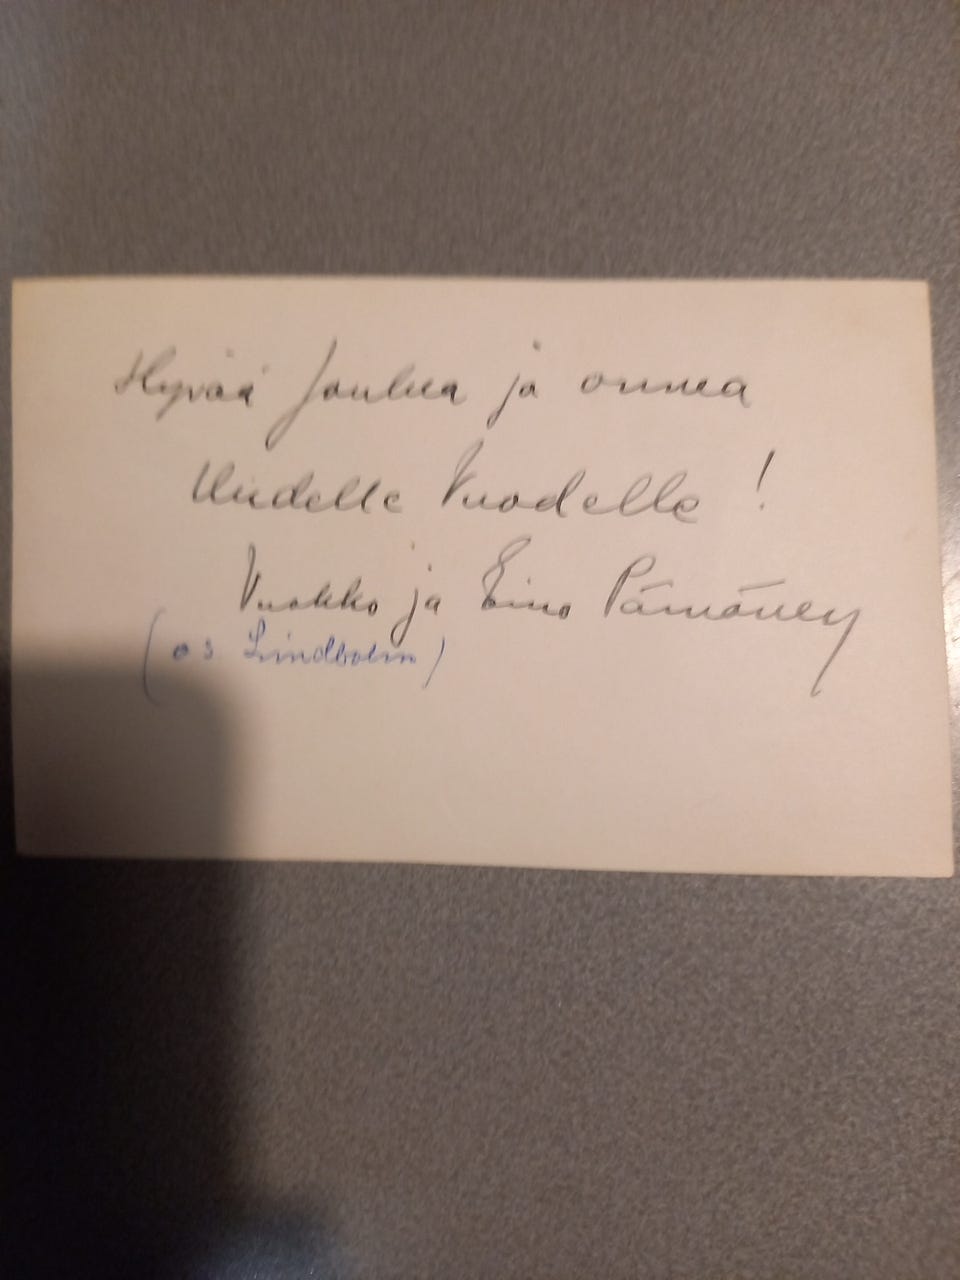 Hyvää Joulua ja onnea
Uudelle Vuodelle !
Vuokko ja Eino
(os Lindholm)